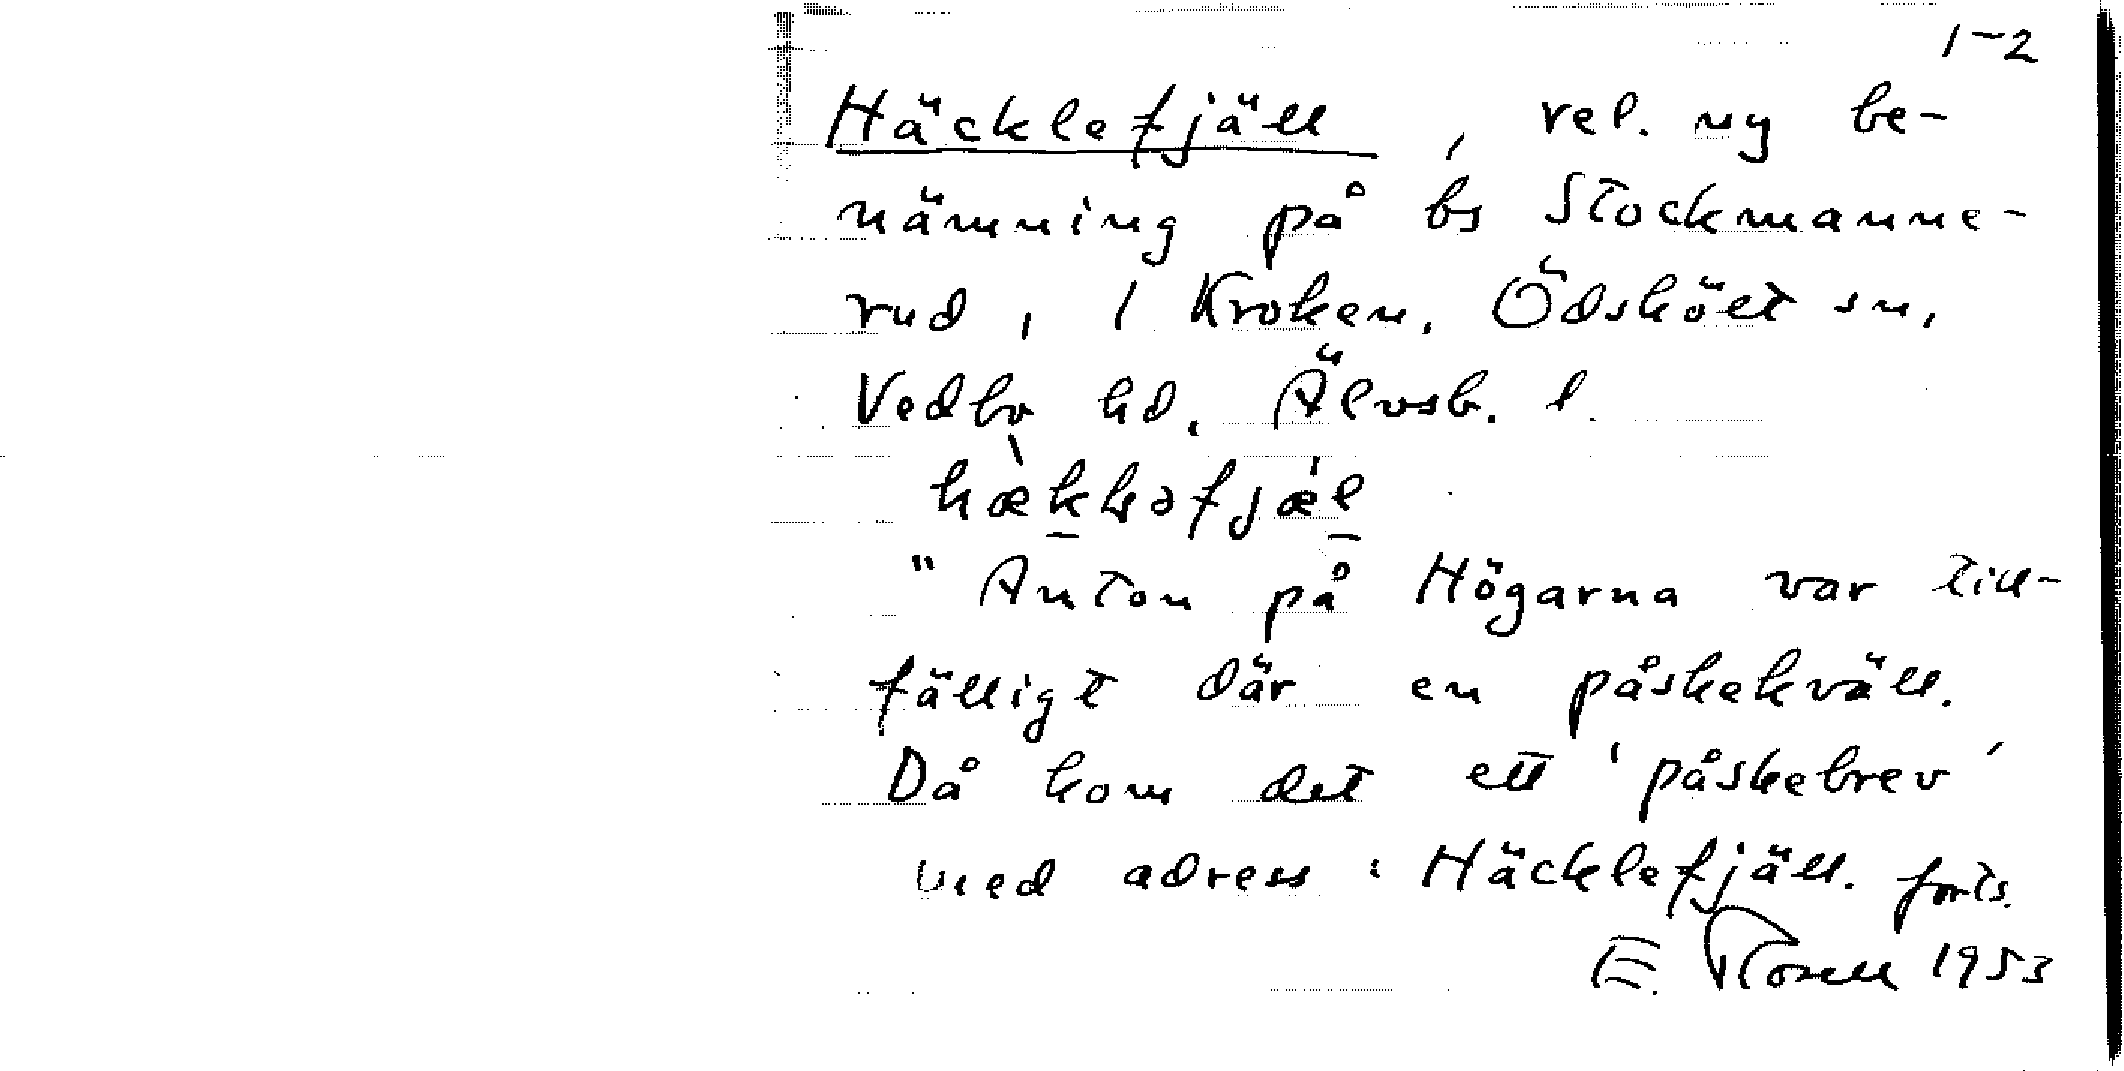 1-2
Häcklefjäll, rel. ny be-
nämning på bs Stockmanne-
rud, 1 Kroken, Ödskölt sn,
Vedbo hd, Älvsb. l.
"Anton på Högarna var till-
fälligt där en påskekväll.
Då kom det ett 'påskebrev'
med adress: Häcklefjäll. forts.
E. Rosell 1953